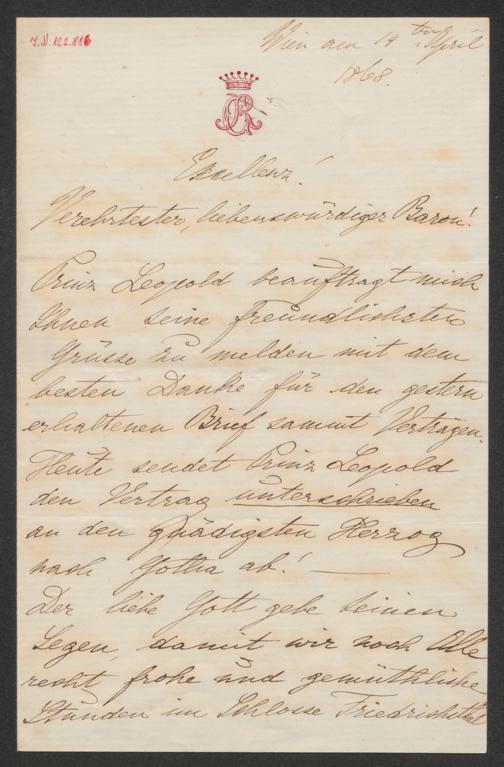 J.N. 122.886
Wien am 14ten April
1868.
CR
Exellenz!
Verehrtester, liebenswürdiger Baron!
Prinz Leopold beauftragt mich
Ihnen seine freundlichsten
Grüsse zu melden mit dem
besten Danke für den gestern
erhaltenen Brief sammt Verträgen.
Heute sendet Prinz Leopold
den Vertrag unterschrieben
an den gnädigsten Herzog
nach Gotha ab! —
Der liebe Gott gebe seinen
Segen, damit wir noch Alle
recht frohe und gemüthliche
Stunden im Schlosse Friedrichsthal